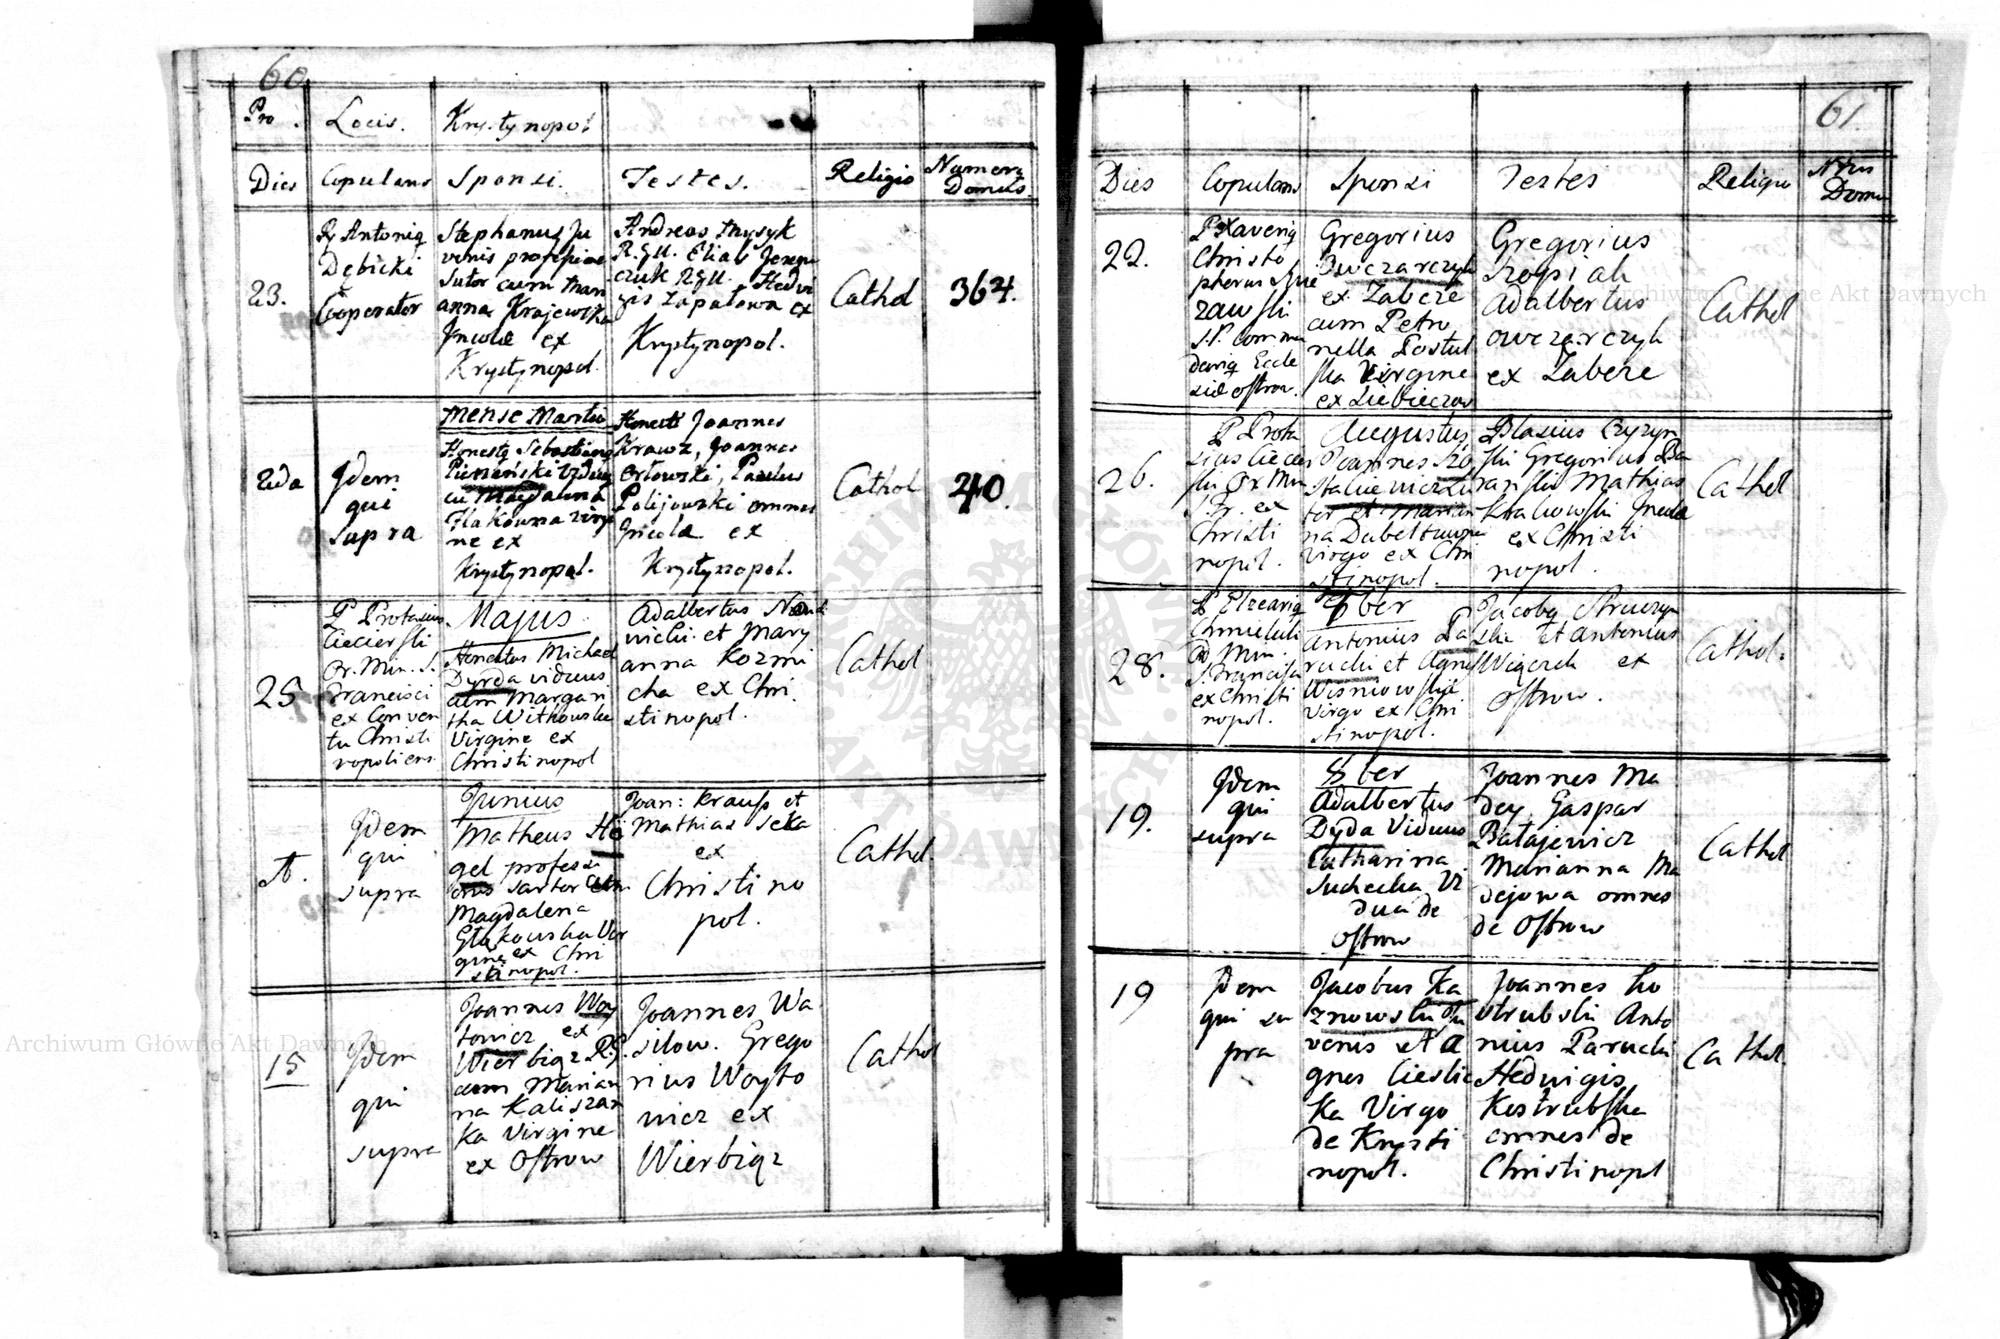 60
Pro Locis. Krystynopol
Dies Copulans Sponsi. Testes. Religio Numerg Domus
23.
Antonig
Dębicki
Cooperator
Stephanus Ju
venis professione
Sutor cum Mari
anna Krajewska
Incolæ ex
Krystynopol.
Andreas
R.G.U. Elias
czuk R.G.U. Hedvi
gis Zapałowa ex
Krystynopol.
Cathol
364.
2da
Idem
qui
supra
Mense Martii
Honestg Sebastiang
cu Magdalena
ne ex
Krystynopol.
Honesti Joannes
Krawz, Joannes
Orłowski, Paulus
Polijowski omnes
Incolæ ex
Krystynopol.
Cathol
40.
25
P Protasius
Ciecierski
Or. Min. S.
Francisci
ex Conven
tu Christi
nopoliens.
Majus
Honestus Michael
Dyrda viduus
cum Marga
tha Witkowska
Virgine ex
Christinopol
Adalbertus
et Mary
anna Kozmi
cha ex Chri
stinopol.
Cathol
Idem
qui
supra
Junius
Matheus He
gel professi
onis Sartor cum
Magdalena
Głakowska Vir
gine ex Chri
stinopol.
Joan: Krauss et
Mathias Seka
ex
Christino
pol.
Cathol.
15
Idem
qui
supra
Joannes Woy
towicz ex
Wierbiąz R.G.
cum Marian
na Kaliszan
ka Virgine
ex Ostrow
Joannes Wa
silow. Grego
rius Woyto
wicz ex
Wierbiąz
Cathol
61.
Dies Copulans Sponsi Testes Religio Nrus Domus
22.
P Xaverig
Christo
pherus
zawski
S.P. Commen
darig Eccle
siæ Ostrow.
Gregorius
Owczarczyk
ex Zabcze
cum Petro
nella Postul
ska Virgine
ex
Gregorius
Szopiak
Adalbertus
owczarczyk
ex Zabcze
Cathol
26.
P Prota
sius Ciecier
ski Or Min
S. Fr. ex
Christi
nopol.
Augustus
Joannes
et Marian
na
virgo ex Chri
stinopol.
Blasius Czyzyn
ski Gregorius Ba
ranski Mathias
Krakowski Incolæ
ex Christi
nopol.
Cathol
28.
P Elzearig
Chmielick
Or Min.
S. Francisci
ex Christi
nopol.
7ber
Antonius Pa
rucki et Agnes
Wisniowska
Virgo ex Chri
stinopol.
Jacobg Struczyn
ski et Antonius
Wiącek ex
Ostrow.
Cathol.
19.
Idem
qui
supra
8ber
Adalbertus
Dyda Viduus
Catharina
Suchecka Vi
dua de
Ostrow
Joannes Ma
dey, Gaspar
Batajewicz
Marianna Ma
dejowa omnes
de Ostrow
Cathol
19
Idem
qui su
pra
Jacobus Ka
znowski Ju
venis et A
gnes Cieslic
ka Virgo
de Kristi
nopol.
Joannes Ko
strubski Anto
nius Parucki
Hedvigis
Kostrubska
omnes de
Christinopol
Cathol.
Archiwum Główne Akt Dawnych
Archiwum Główne Akt Dawnych
ARCHIWUM GŁÓWNE AKT DAWNYCH